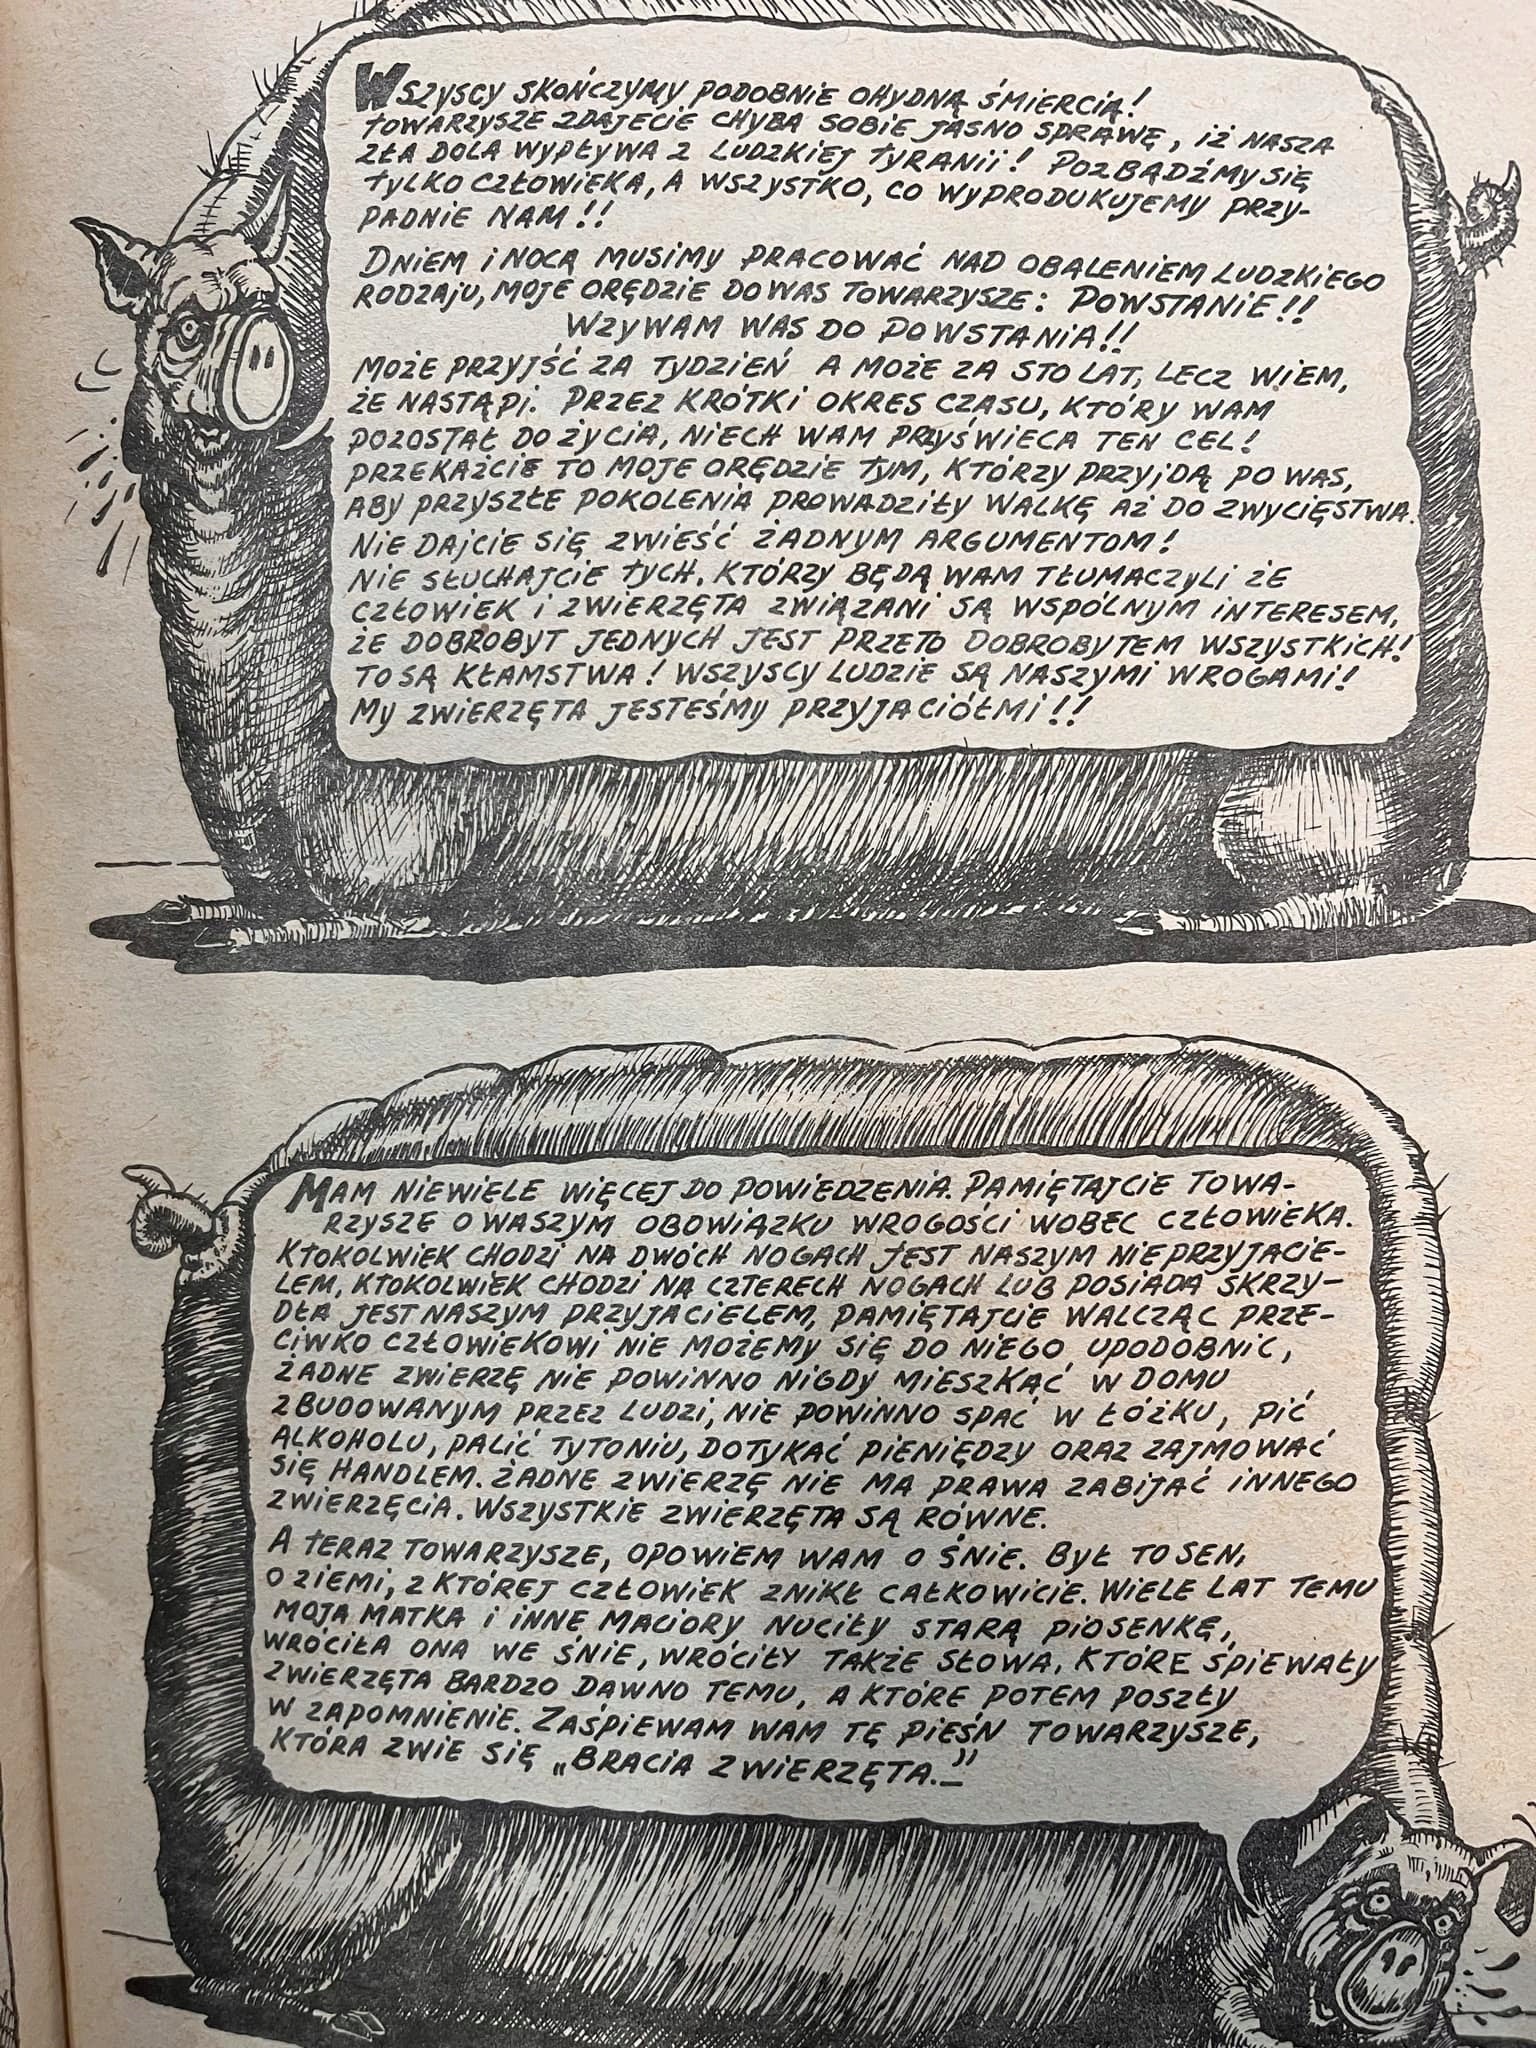 WSZYSCY SKOŃCZYMY PODOBNIE OHYDNĄ ŚMIERCIĄ!
TOWARZYSZE ZDAJECIE CHYBA SOBIE JASNO SPRAWĘ, IŻ NASZA
ZŁA DOLA WYPŁYWA Z LUDZKIEJ TYRANII! POZBĄDŹMY SIĘ
TYLKO CZŁOWIEKA, A WSZYSTKO, CO WYPRODUKUJEMY PRZY-
PADNIE NAM!!
DNIEM I NOCĄ MUSIMY PRACOWAĆ NAD OBALENIEM LUDZKIEGO
RODZAJU, MOJE ORĘDZIE DO WAS TOWARZYSZE: POWSTANIE!!
WZYWAM WAS DO POWSTANIA!!
MOŻE PRZYJŚĆ ZA TYDZIEŃ A MOŻE ZA STO LAT, LECZ WIEM,
ŻE NASTĄPI. PRZEZ KRÓTKI OKRES CZASU, KTÓRY WAM
POZOSTAŁ DO ŻYCIA, NIECH WAM PRZYŚWIECA TEN CEL!
PRZEKAŻCIE TO MOJE ORĘDZIE TYM, KTÓRZY PRZYJDĄ PO WAS,
ABY PRZYSZŁE POKOLENIA PROWADZIŁY WALKĘ AŻ DO ZWYCIĘSTWA.
NIE DAJCIE SIĘ ZWIEŚĆ ŻADNYM ARGUMENTOM!
NIE SŁUCHAJCIE TYCH, KTÓRZY BĘDĄ WAM TŁUMACZYLI ŻE
CZŁOWIEK I ZWIERZĘTA ZWIĄZANI SĄ WSPÓLNYM INTERESEM,
ŻE DOBROBYT JEDNYCH JEST PRZETO DOBROBYTEM WSZYSTKICH!
TO SĄ KŁAMSTWA! WSZYSCY LUDZIE SĄ NASZYMI WROGAMI!
MY ZWIERZĘTA JESTEŚMY PRZYJACIÓŁMI!!
MAM NIEWIELE WIĘCEJ DO POWIEDZENIA. PAMIĘTAJCIE TOWA-
RZYSZE O WASZYM OBOWIĄZKU WROGOŚCI WOBEC CZŁOWIEKA.
KTOKOLWIEK CHODZI NA DWÓCH NOGACH JEST NASZYM NIEPRZYJACIE-
LEM, KTOKOLWIEK CHODZI NA CZTERECH NOGACH LUB POSIADA SKRZY-
DŁA JEST NASZYM PRZYJACIELEM, PAMIĘTAJCIE WALCZĄC PRZE-
CIWKO CZŁOWIEKOWI NIE MOŻEMY SIĘ DO NIEGO UPODOBNIĆ,
ŻADNE ZWIERZĘ NIE POWINNO NIGDY MIESZKAĆ W DOMU
ZBUDOWANYM PRZEZ LUDZI, NIE POWINNO SPAĆ W ŁÓŻKU, PIĆ
ALKOHOLU, PALIĆ TYTONIU, DOTYKAĆ PIENIĘDZY ORAZ ZAJMOWAĆ
SIĘ HANDLEM. ŻADNE ZWIERZĘ NIE MA PRAWA ZABIJAĆ INNEGO
ZWIERZĘCIA. WSZYSTKIE ZWIERZĘTA SĄ RÓWNE.
A TERAZ TOWARZYSZE, OPOWIEM WAM O ŚNIE. BYŁ TO SEN,
O ZIEMI, Z KTÓREJ CZŁOWIEK ZNIKŁ CAŁKOWICIE. WIELE LAT TEMU
MOJA MATKA I INNE MACIORY NUCIŁY STARĄ PIOSENKĘ,
WRÓCIŁA ONA WE ŚNIE, WRÓCIŁY TAKŻE SŁOWA, KTÓRE ŚPIEWAŁY
ZWIERZĘTA BARDZO DAWNO TEMU, A KTÓRE POTEM POSZŁY
W ZAPOMNIENIE. ZAŚPIEWAM WAM TĘ PIEŚŃ TOWARZYSZE,
KTÓRA ZWIE SIĘ „BRACIA ZWIERZĘTA._”